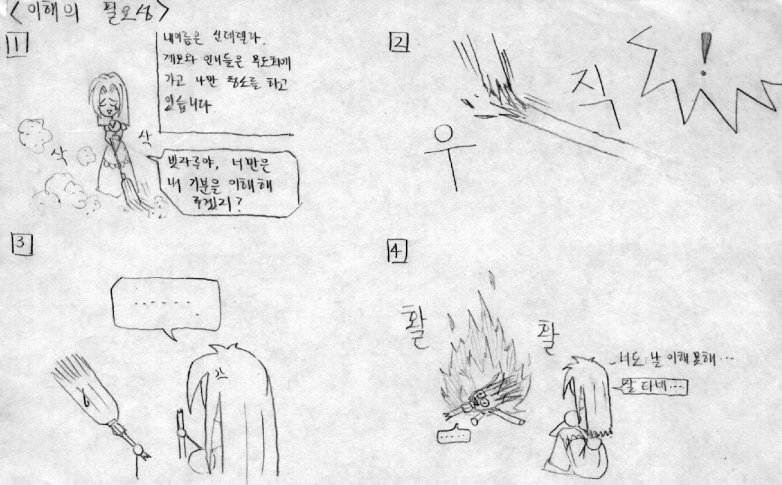 <이해의 필요성>
1
내이름은 신데렐라.
계모와 언니들은 무도회에
가고 나만 청소를 하고
있습니다
삭
삭
빗자루야, 너만은
내 기분을 이해해
주겠지?
2
직
!
3
.......
4
활
활
너도 날 이해 못해...
잘 타네...
.....